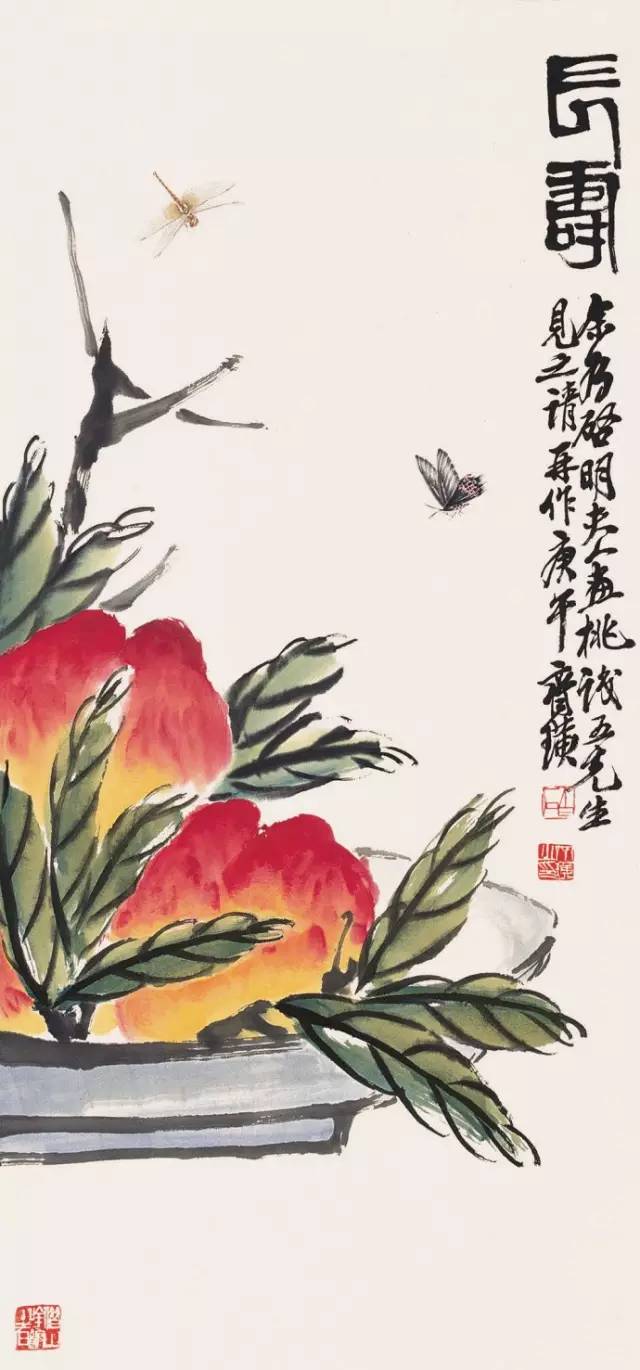 長壽
余为啓明夫人畫桃诚五先生
見之請再作庚午齊璜